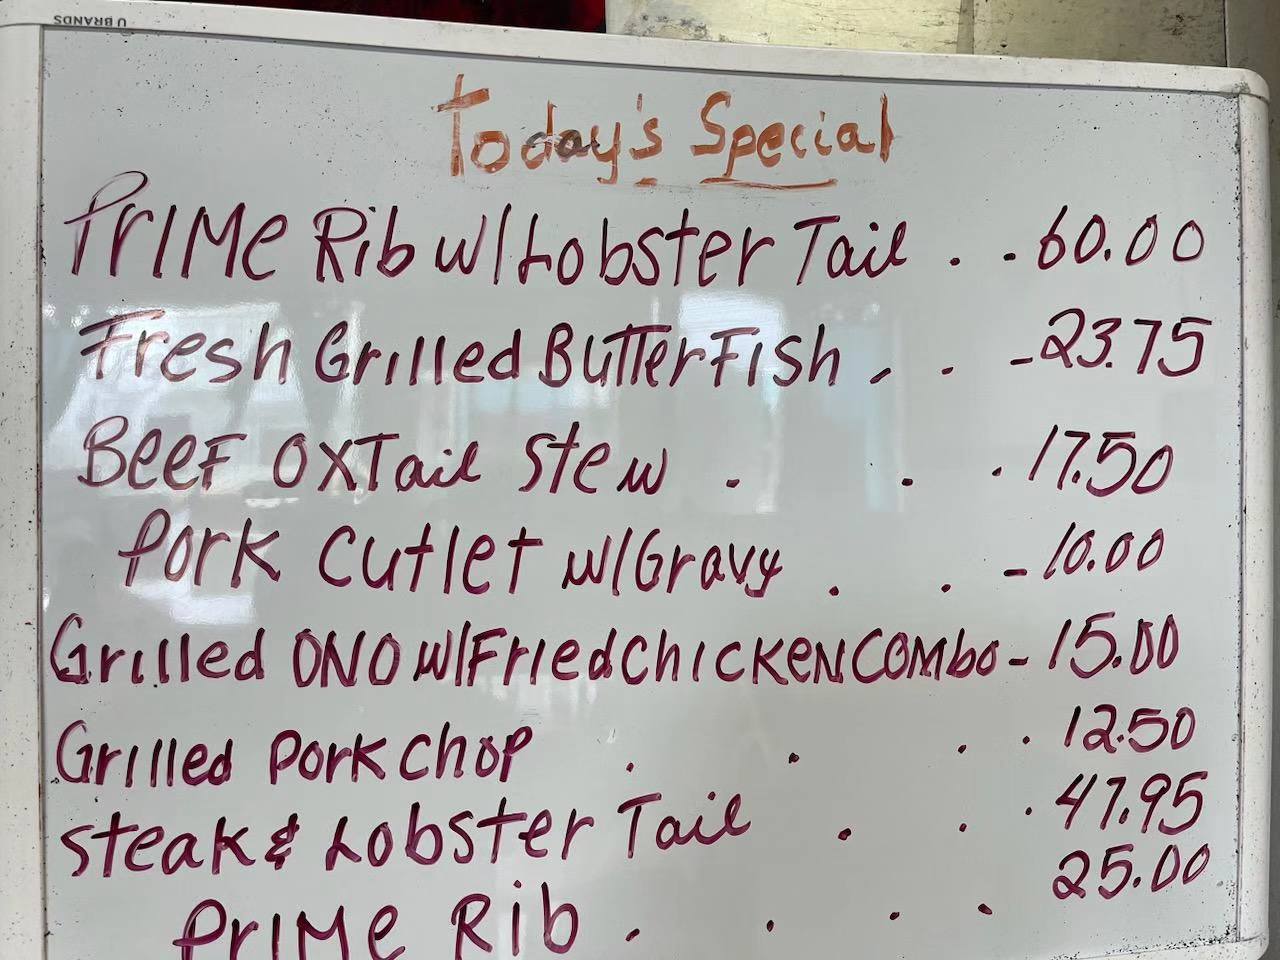 U BRANDS
Today's Special
Prime Rib w/Lobster Tail . . 60.00
Fresh Grilled Butter Fish . . - 23.75
Beef Oxtail Stew . . . 17.50
Pork Cutlet w/Gravy . . - 10.00
Grilled ONO w/Fried Chicken Combo - 15.00
Grilled Pork Chop . . . . 12.50
Steak & Lobster Tail . . . 47.95
Prime Rib . . . . 25.00